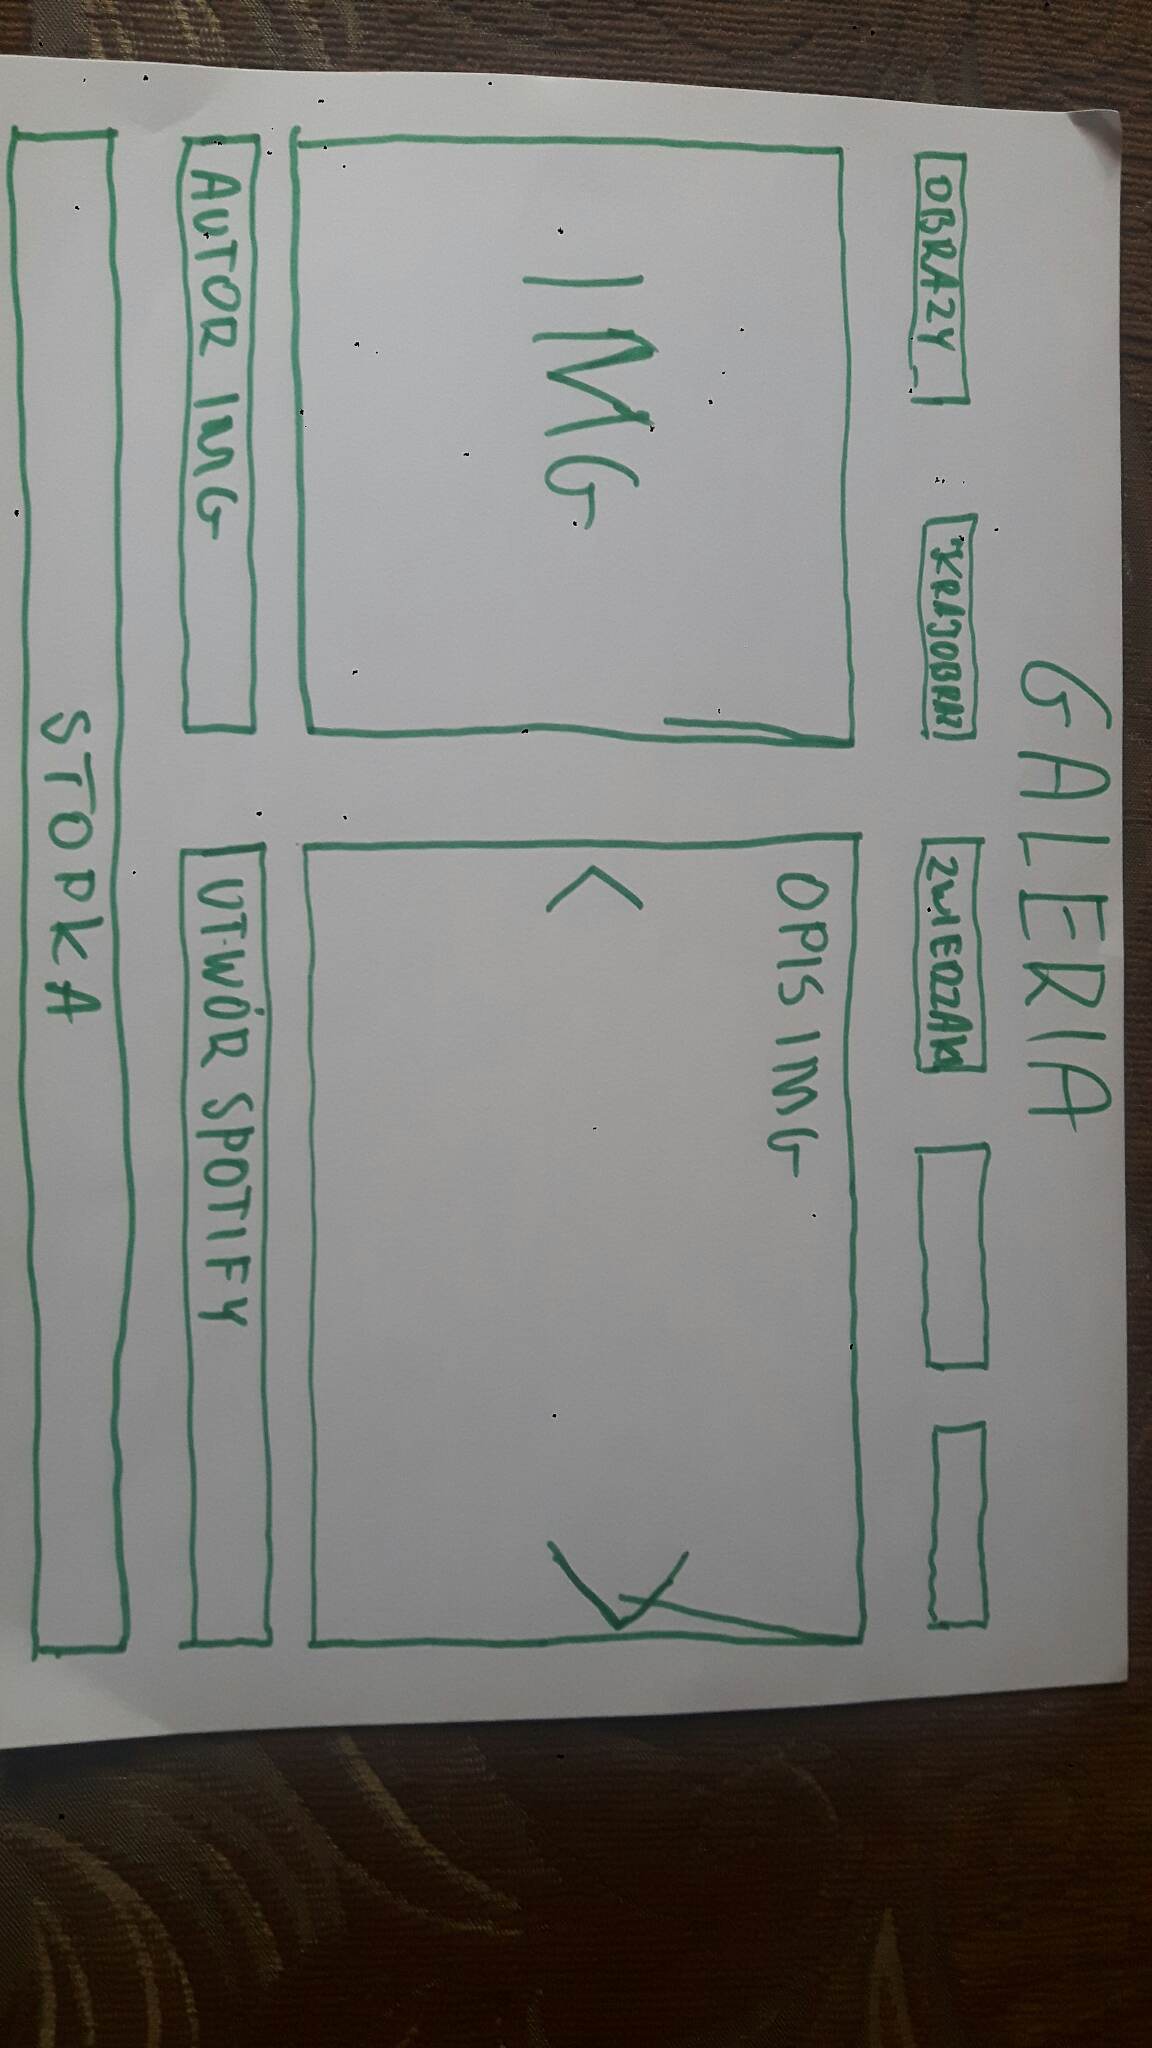 GALERIA
OBRAZY
KRAJOBRAZ
ZWIERZAKI
OPIS IMG
IMG
< >
AUTOR IMG
UTWÓR SPOTIFY
STOPKA